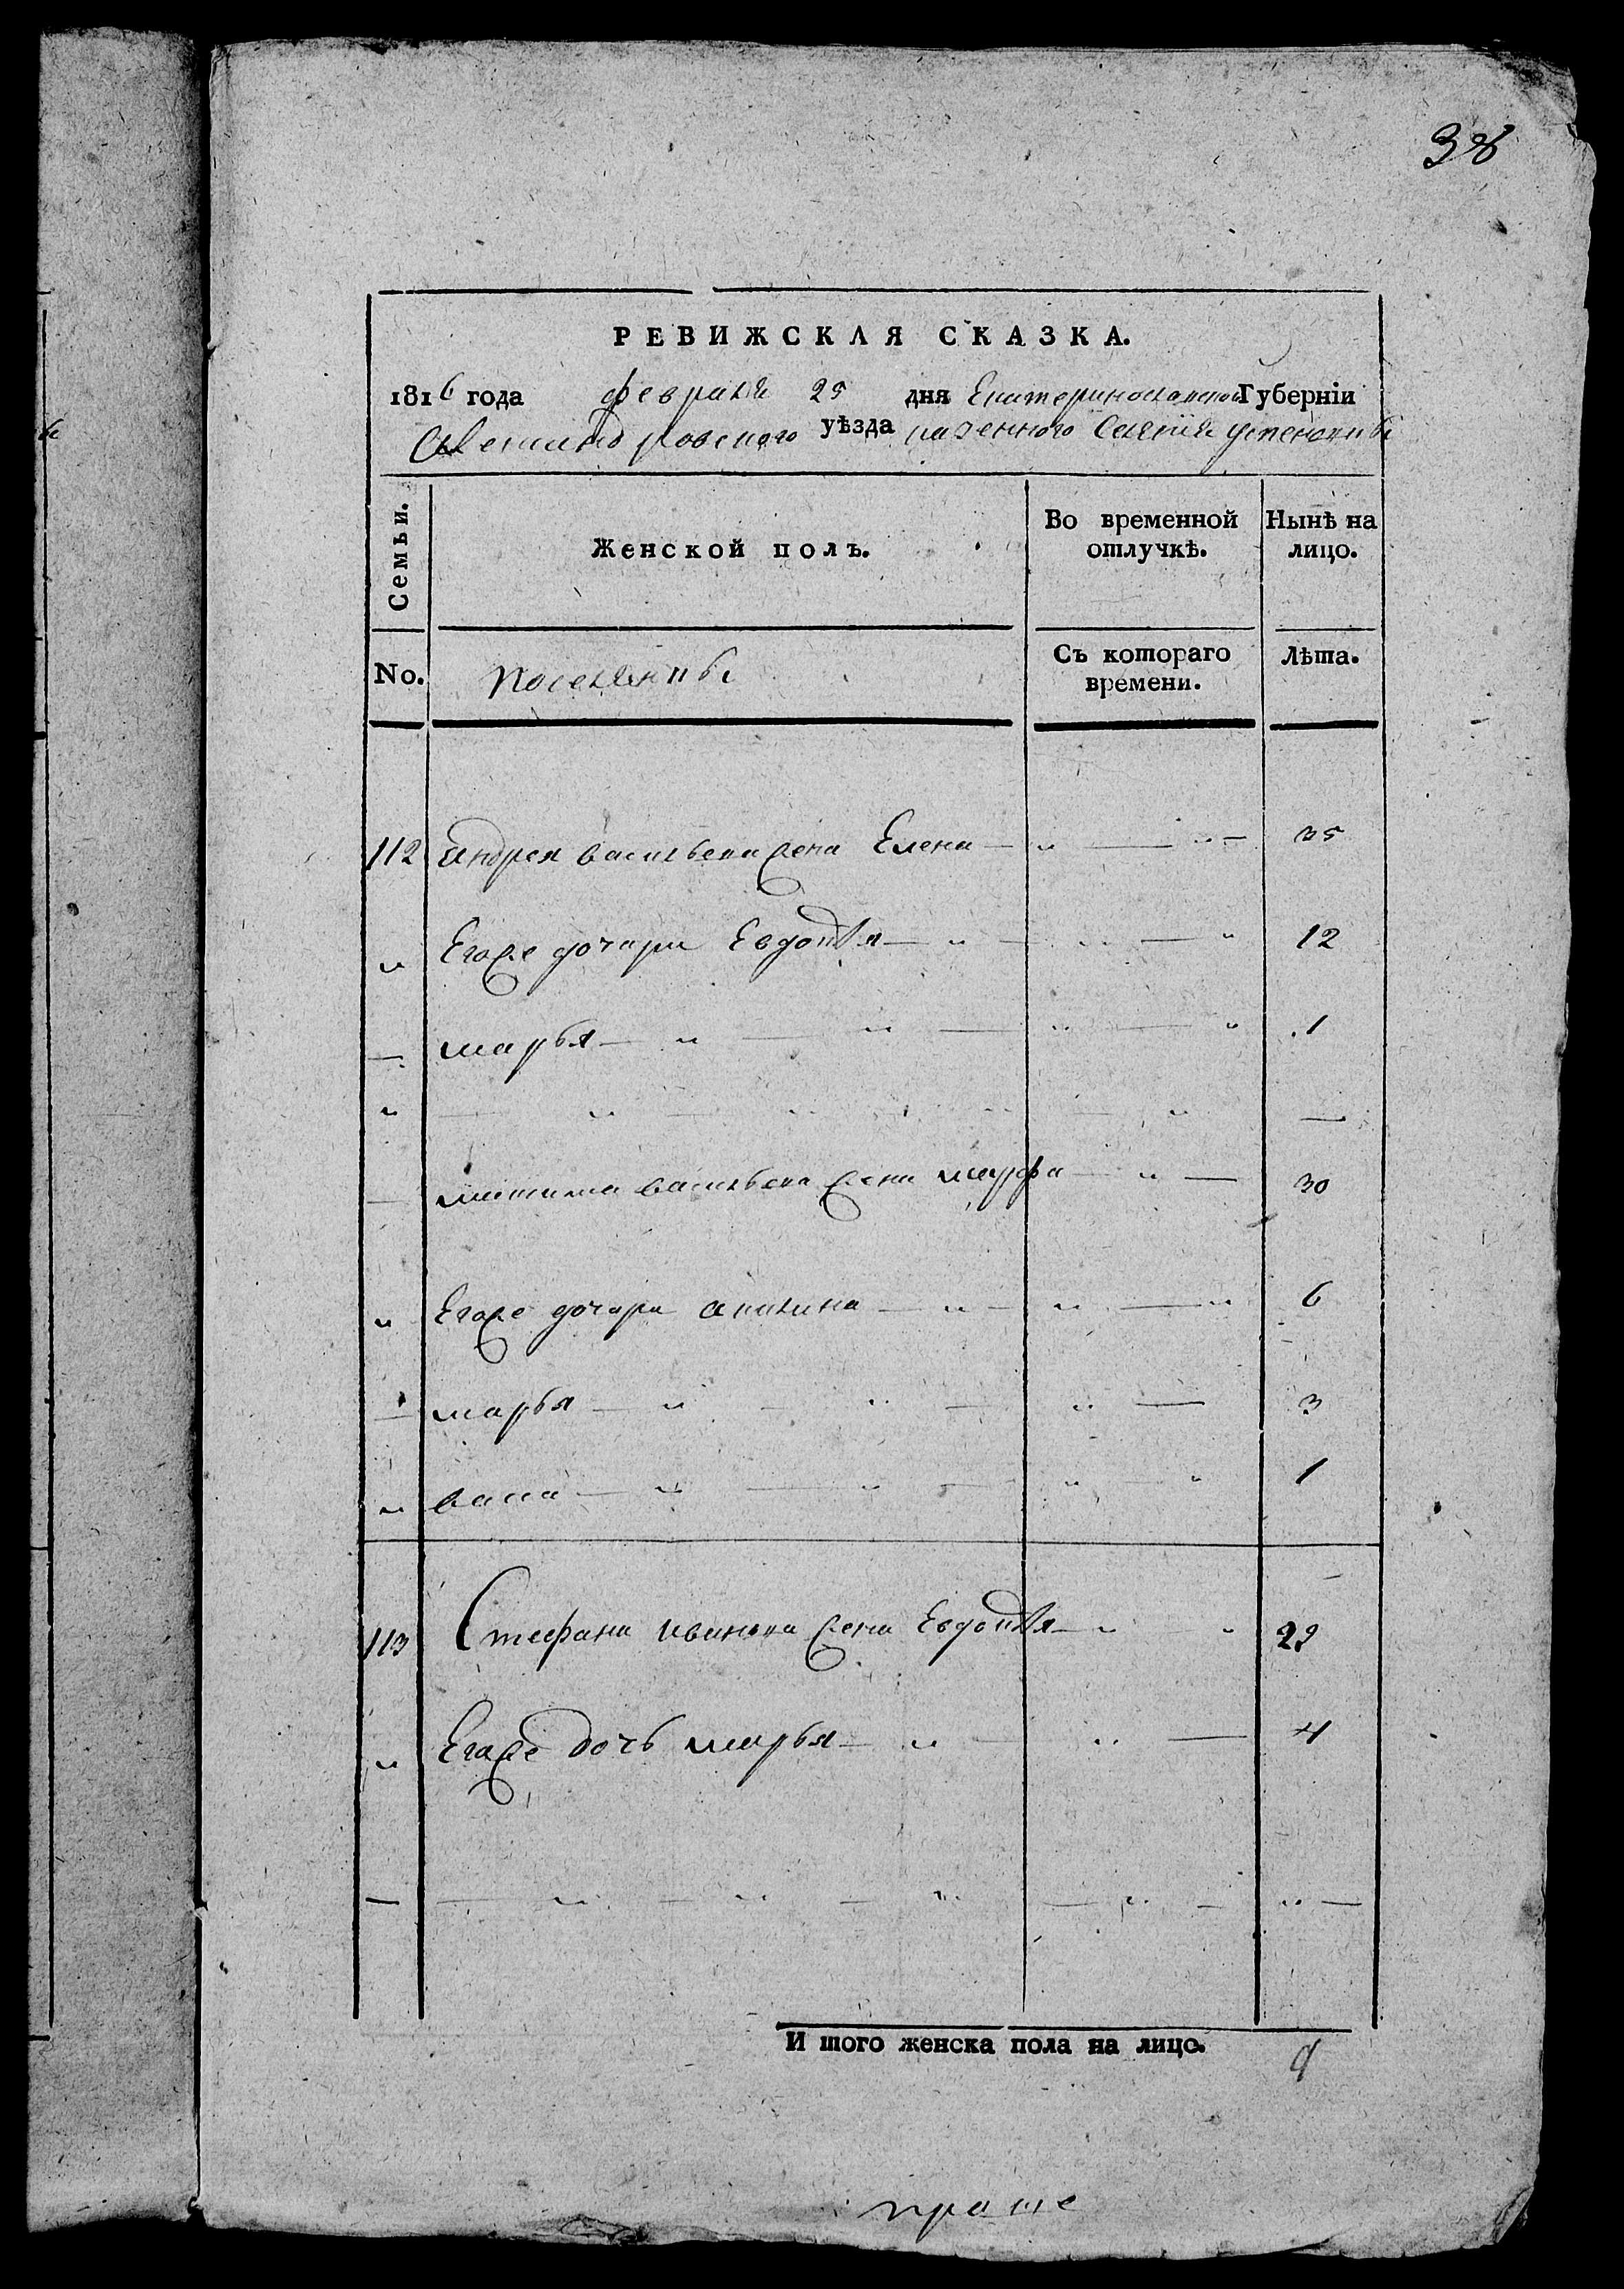 38
РЕВИЖСКАЯ СКАЗКА.
1816 года февраля 25 дня Екатеринославской Губернїи
Александровского уѣзда казенного Селенія Успеновки
Семьи.
Женской полъ.
Во временной отлучкѣ.
Нынѣ на лицо.
No.
поселянки
Съ котораго времени.
Лѣта.
112 андрея васильева жена Елена — „ — „ — 35
„ Егоже дочери Евдокѣя — „ — „ — „ 12
— марья — „ — „ — „ — „ 1
„ — „ — „ — „ — „ —
— васильева жена марфа — „ — 30
„ Егоже дочери акилина — „ — „ — „ 6
— марья — „ — „ — „ — 3
„ васса — „ — „ — „ — „ 1
113 Стефана иванова жена Евдокѣя — „ „ 29
„ Егоже дочь марья — „ — „ — 4
— — „ — „ — „ — „ — „ —
И того женска пола на лицо. 9